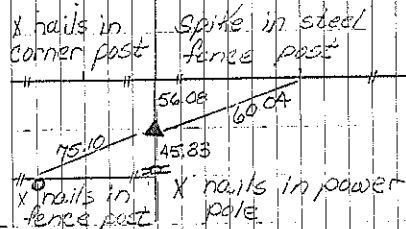 X nails in
corner post
spike in steel
fence post
56.08
60.04
75.10
45.83
X nails in
fence post
X nails in power
pole